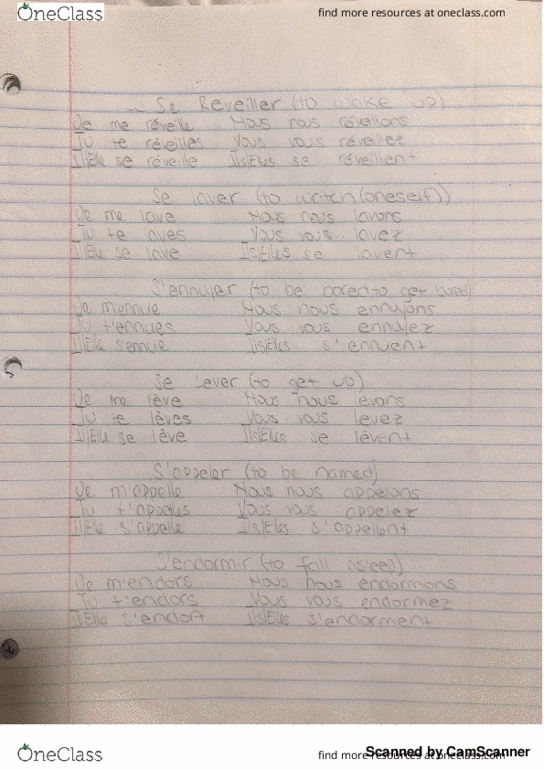 OneClass
find more resources at oneclass.com
Se Réveiller (to woke up)
Je me réveille Nous nous réveillons
Tu te réveilles Vous vous réveillez
Il/Elle se réveille Ils/Elles se réveillent
Se laver (to watch (oneself))
Je me lave Nous nous lavons
Tu te laves Vous vous lavez
Il/Elle se lave Ils/Elles se lavent
S'ennuyer (to be bored to get bored)
Je m'ennuie Nous nous ennuyons
Tu t'ennues Vous vous ennuyez
Il/Elle s'ennuie Ils/Elles s'ennuent
Se Lever (to get up)
Je me lève Nous nous levons
Tu te lèves Vous vous levez
Il/Elle se lève Ils/Elles se lèvent
S'appeler (to be named)
Je m'appelle Nous nous appelons
Tu t'appelles Vous vous appelez
Il/Elle s'appelle Ils/Elles s'appellent
S'endormir (to fall asleep)
Je m'endors Nous nous endormons
Tu t'endors Vous vous endormez
Il/Elle s'endort Ils/Elles s'endorment
OneClass
find more resources at oneclass.com
Scanned by CamScanner